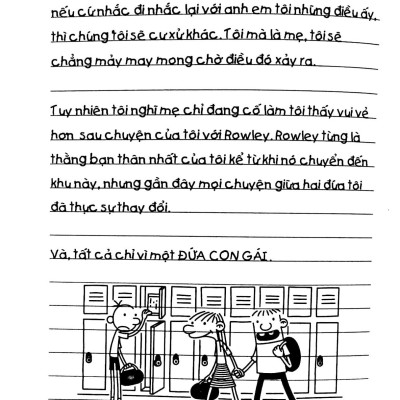 nếu cứ nhắc đi nhắc lại với anh em tôi những điều ấy,
thì chúng tôi sẽ cư xử khác. Tôi mà là mẹ, tôi sẽ
chẳng mảy may mong chờ điều đó xảy ra.
Tuy nhiên tôi nghĩ mẹ chỉ đang cố làm tôi thấy vui vẻ
hơn sau chuyện của tôi với Rowley. Rowley từng là
thằng bạn thân nhất của tôi kể từ khi nó chuyển đến
khu này, nhưng gần đây mọi chuyện giữa hai đứa tôi
đã thực sự thay đổi.
Và, tất cả chỉ vì một ĐỨA CON GÁI.